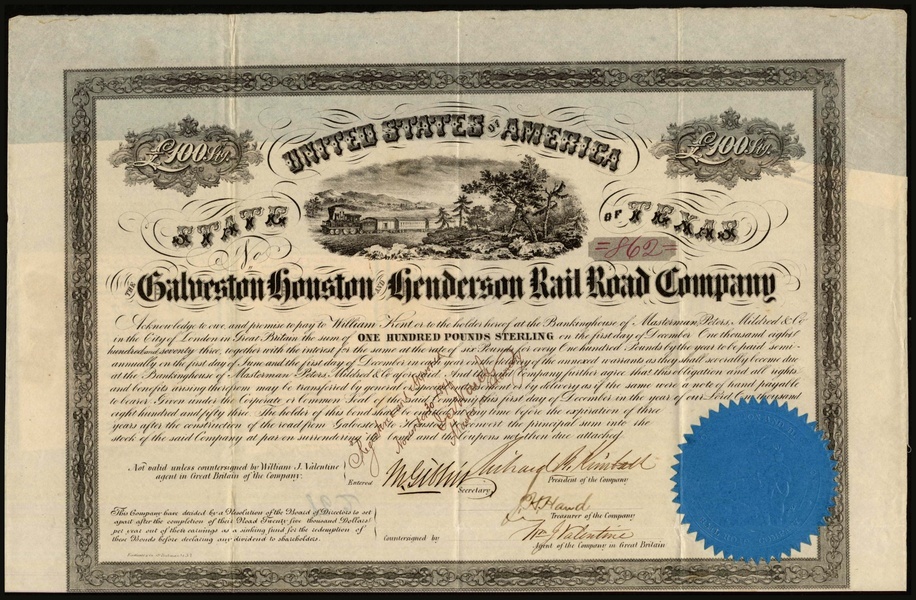 £100 Stg.
£100 Stg.
UNITED STATES OF AMERICA
STATE OF TEXAS
No =862=
THE Galveston Houston AND Henderson Rail Road Company
Acknowledge to owe and promise to pay to William Kent or to the holder hereof at the Bankinghouse of Masterman, Peters, Mildred & Co
in the City of London in Great Britain the sum of ONE HUNDRED POUNDS STERLING on the first day of December One thousand eight
hundred and seventy three, together with the interest for the same at the rate of six Pounds for every One hundred Pounds by the year to be paid semi-
annually on the first day of June and the first day of December in each year on the the annexed warrants as they shall severally become due
at the Bankinghouse of Masterman Peters, Mildred & Co aforesaid. And the said Company further agree that this obligation and all rights
and benefits arising therefrom may be transferred by general or special endorsement or by delivery as if the same were a note of hand payable
to bearer. Given under the Corporate or Common Seal of the said Company this first day of December in the year of our Lord One thousand
eight hundred and fifty three. The holder of this bond shall be entitled at any time before the expiration of three
years after the construction of the road from Galveston to Houston to convert the principal sum into the
stock of the said Company at par on surrendering and the coupons not then due attached
Not valid unless countersigned by William J. Valentine
agent in Great Britain of the Company.
Entered
Secretary
Richard R. Kimball
President of the Company
Treasurer of the Company
This Company have decided by a Resolution of the Board of Directors to set
apart after the completion of their Road Twenty five thousand Dollars
per year out of their earnings as a sinking fund for the redemption of
these Bonds before declaring any dividend to shareholders.
Countersigned by
Wm J Valentine
Agent of the Company in Great Britain